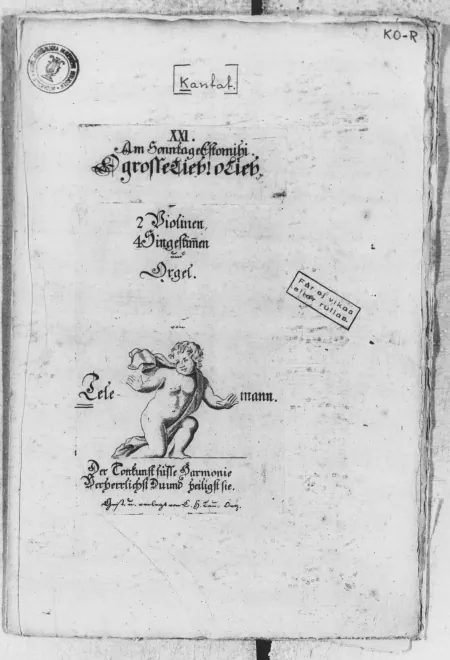 KO-R
[Kantat.]
XXI.
Am Sonntage Estomihi
O grosse Lieb! o Lieb,
2 Violinen,
4 Singestimen
und
Orgel.
Får ej vikas
eller rullas
von
Tele- mann.
Der Tonkunst süsse Harmonie
Verherrlichst Du und heiligst sie.